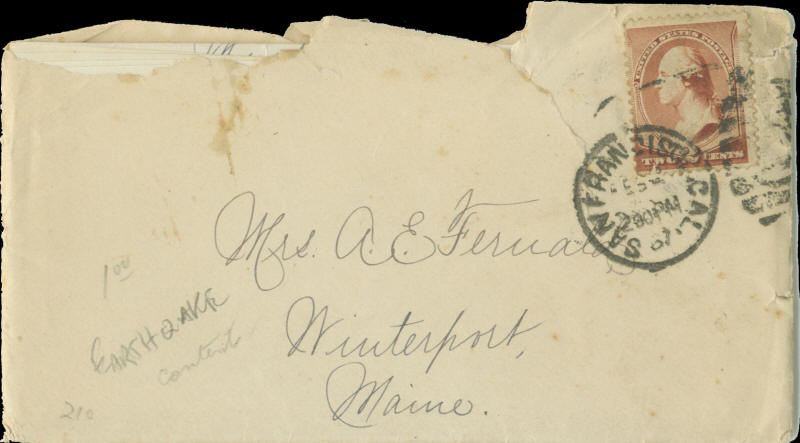 UNITED STATES POSTAGE
TWO 2 CENTS
SAN FRANCISCO, CAL.
2 30 PM
Mrs. A. E. Fernald
Winterport,
Maine.
1 00
EARTHQAKE
content
210